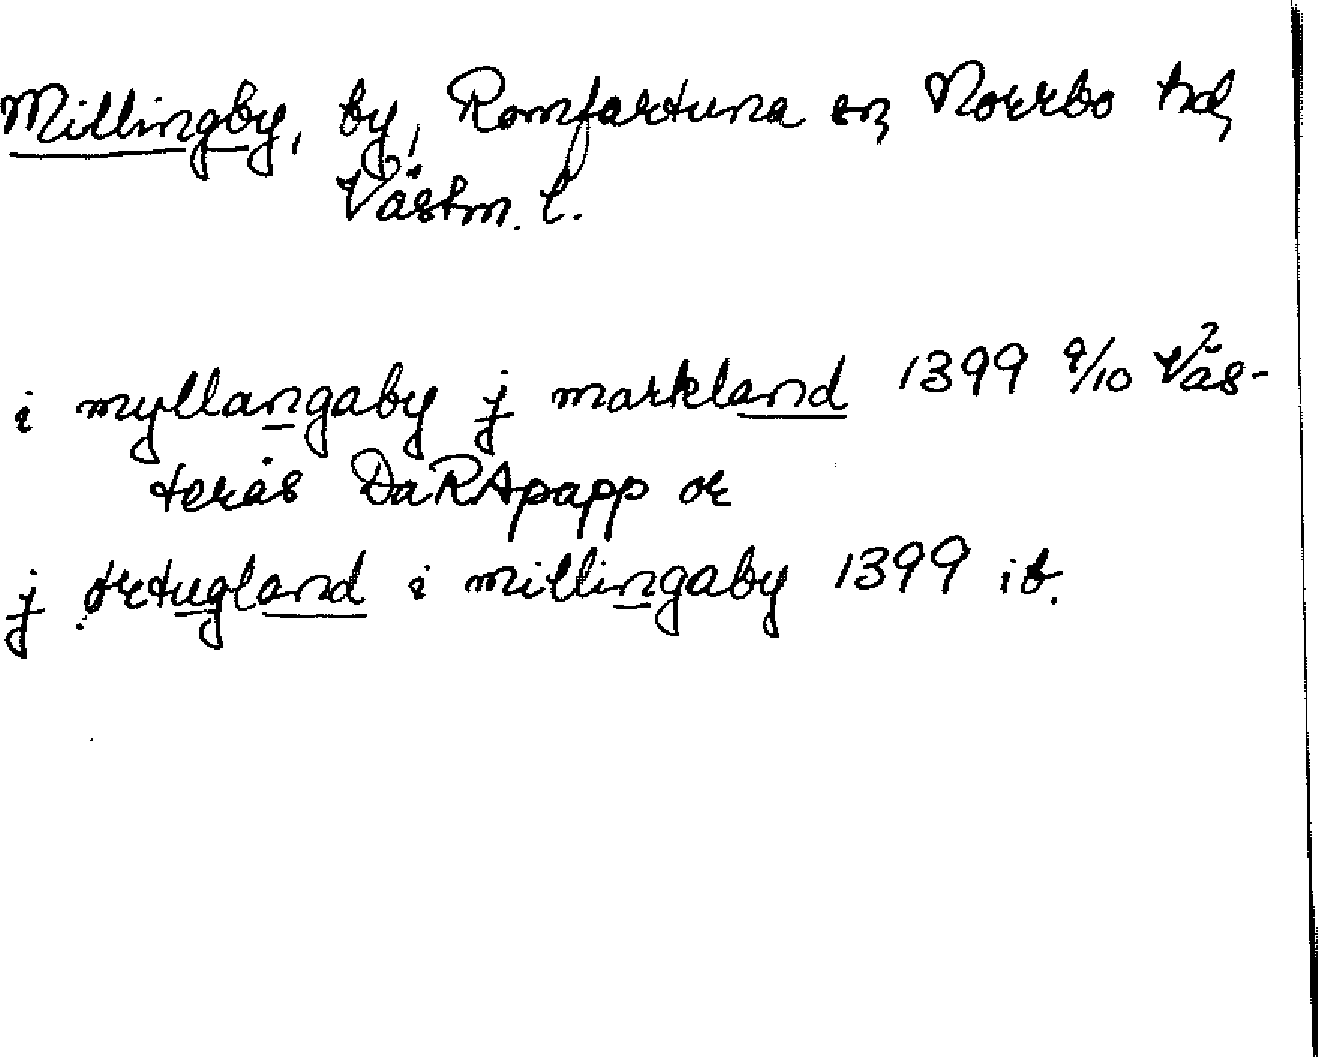 Millingby, by, Romfartuna sn, Norrbo hd,
Västm. l.
i myllangaby j markland 1399 9/10 Väs-
terås DaRApapp or
j ørtugland i millingaby 1399 ib.